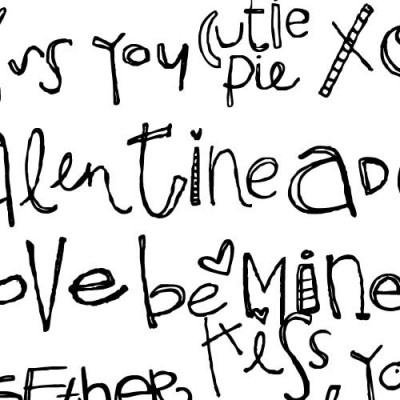 you cutie pie XO
alentine ado
ove be mine
kiss, yo
gether